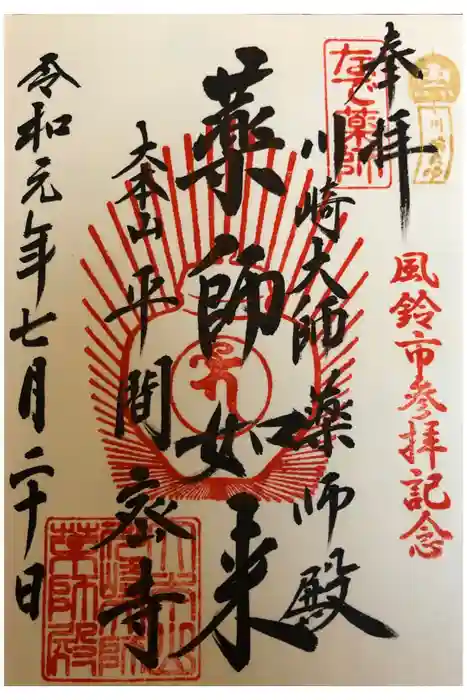 奉拝
風鈴市参拝記念
なで薬師
川崎大師薬師殿
薬師如来
大本山平間密寺
令和元年七月二十日
薬師殿